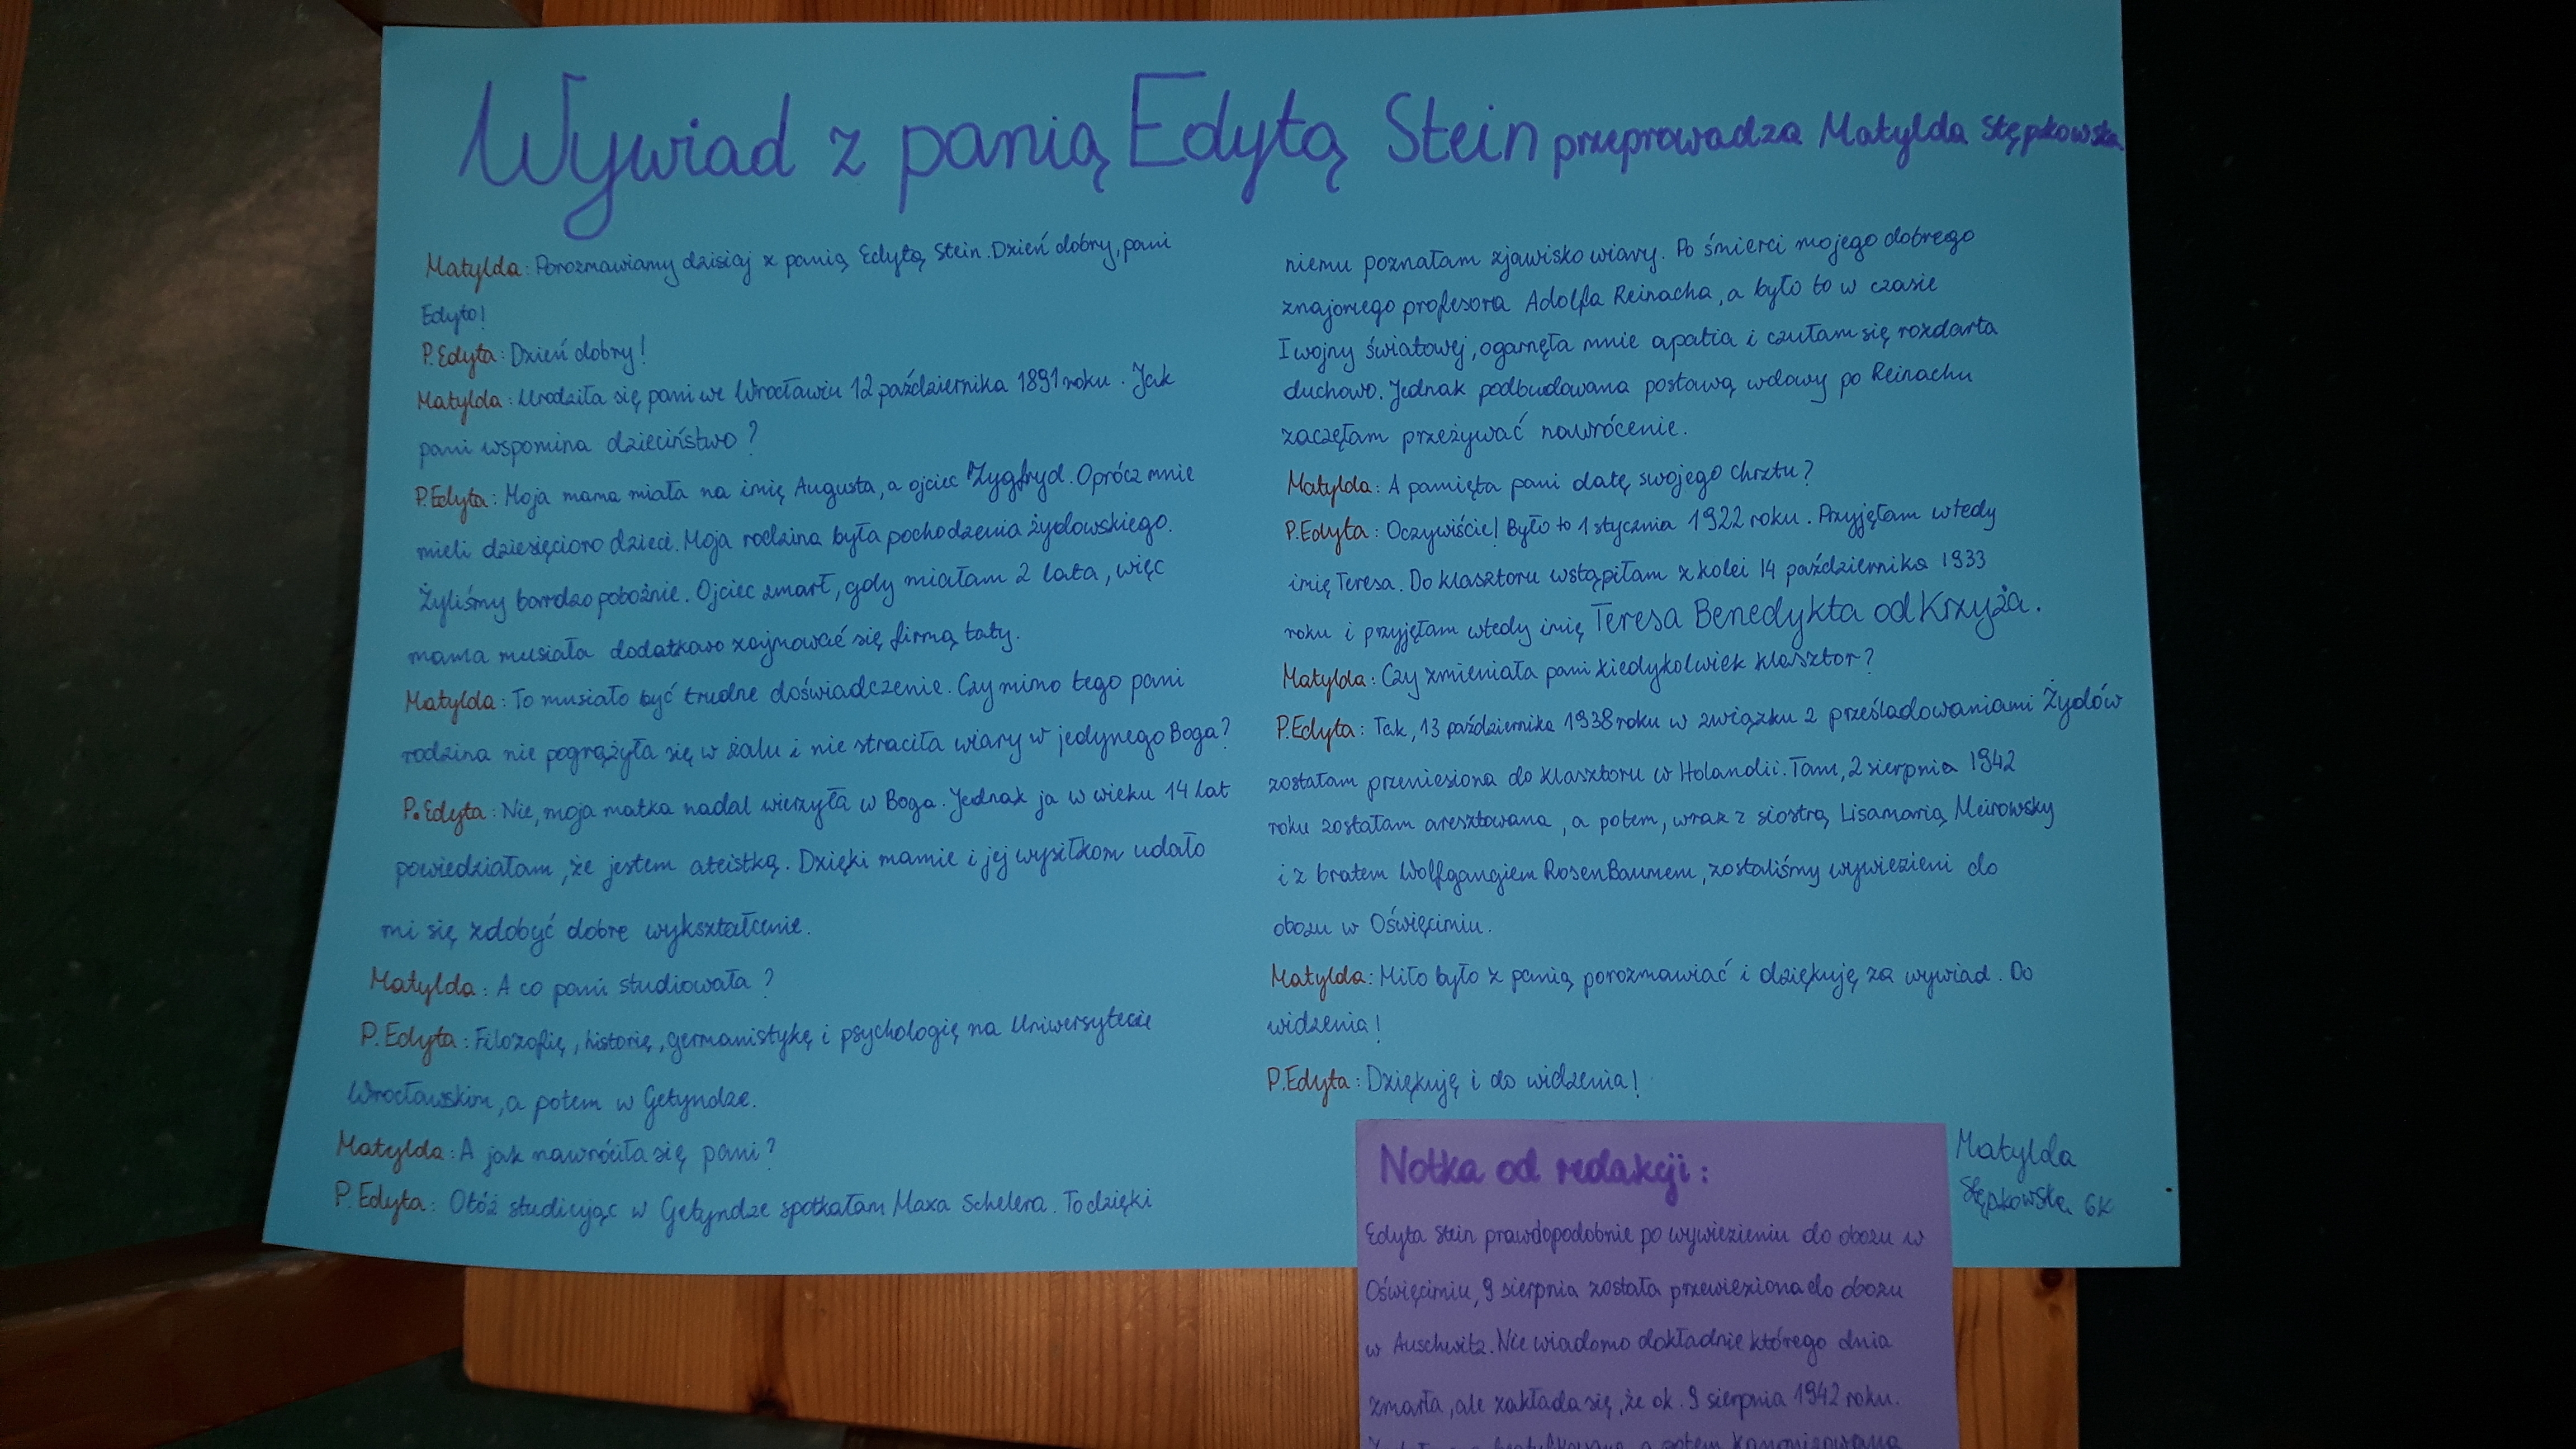 Wywiad z panią Edytą Stein przeprowadza Matylda Stępkowska
Matylda: Porozmawiamy dzisiaj z panią Edytą Stein. Dzień dobry, pani
Edyto!
P. Edyta: Dzień dobry!
Matylda: Urodziła się pani we Wrocławiu 12 października 1891 roku. Jak
pani wspomina dzieciństwo?
P.Edyta: Moja mama miała na imię Augusta, a ojciec Zygfryd. Oprócz mnie
mieli dziesięcioro dzieci. Moja rodzina była pochodzenia żydowskiego.
Żyliśmy bardzo pobożnie. Ojciec zmarł, gdy miałam 2 lata, więc
mama musiała dodatkowo zajmować się firmą taty.
Matylda: To musiało być trudne doświadczenie. Czy mimo tego pani
rodzina nie pogrążyła się w żalu i nie straciła wiary w jedynego Boga?
P. Edyta: Nie, moja matka nadal wierzyła w Boga. Jednak ja w wieku 14 lat
powiedziałam, że jestem ateistką. Dzięki mamie i jej wysiłkom udało
mi się zdobyć dobre wykształcenie.
Matylda: A co pani studiowała?
P. Edyta: Filozofię, historię, germanistykę i psychologię na Uniwersytecie
Wrocławskim, a potem w Getyndze.
Matylda: A jak nawróciła się pani?
P. Edyta: Otóż studiując w Getyndze spotkałam Maxa Schelera. To dzięki
niemu poznałam zjawisko wiary. Po śmierci mojego dobrego
znajomego profesora Adolfa Reinacha, a było to w czasie
I wojny światowej, ogarnęła mnie apatia i czułam się rozdarta
duchowo. Jednak podbudowana postawą wdowy po Reinachu
zaczęłam przeżywać nawrócenie.
Matylda: A pamięta pani datę swojego chrztu?
P.Edyta: Oczywiście! Było to 1 stycznia 1922 roku. Przyjęłam wtedy
imię Teresa. Do klasztoru wstąpiłam z kolei 14 października 1933
roku i przyjęłam wtedy imię Teresa Benedykta od Krzyża.
Matylda: Czy zmieniała pani kiedykolwiek klasztor?
P.Edyta: Tak, 13 października 1938 roku w związku z prześladowaniami Żydów
zostałam przeniesiona do klasztoru w Holandii. Tam, 2 sierpnia 1942
roku zostałam aresztowana, a potem, wraz z siostrą Lisamarią Meirowsky
i z bratem Wolfgangiem RosenBaumem, zostaliśmy wywiezieni do
obozu w Oświęcimiu.
Matylda: Miło było z panią porozmawiać i dziękuję za wywiad. Do
widzenia!
P.Edyta: Dziękuję i do widzenia!
Matylda
Stępkowska 6K
Notka od redakcji:
Edyta Stein prawdopodobnie po wywiezieniu do obozu w
Oświęcimiu, 9 sierpnia została przewieziona do obozu
w Auschwitz. Nie wiadomo dokładnie którego dnia
zmarła, ale zakłada się, że ok. 9 sierpnia 1942 roku.
a potem kanonizowana